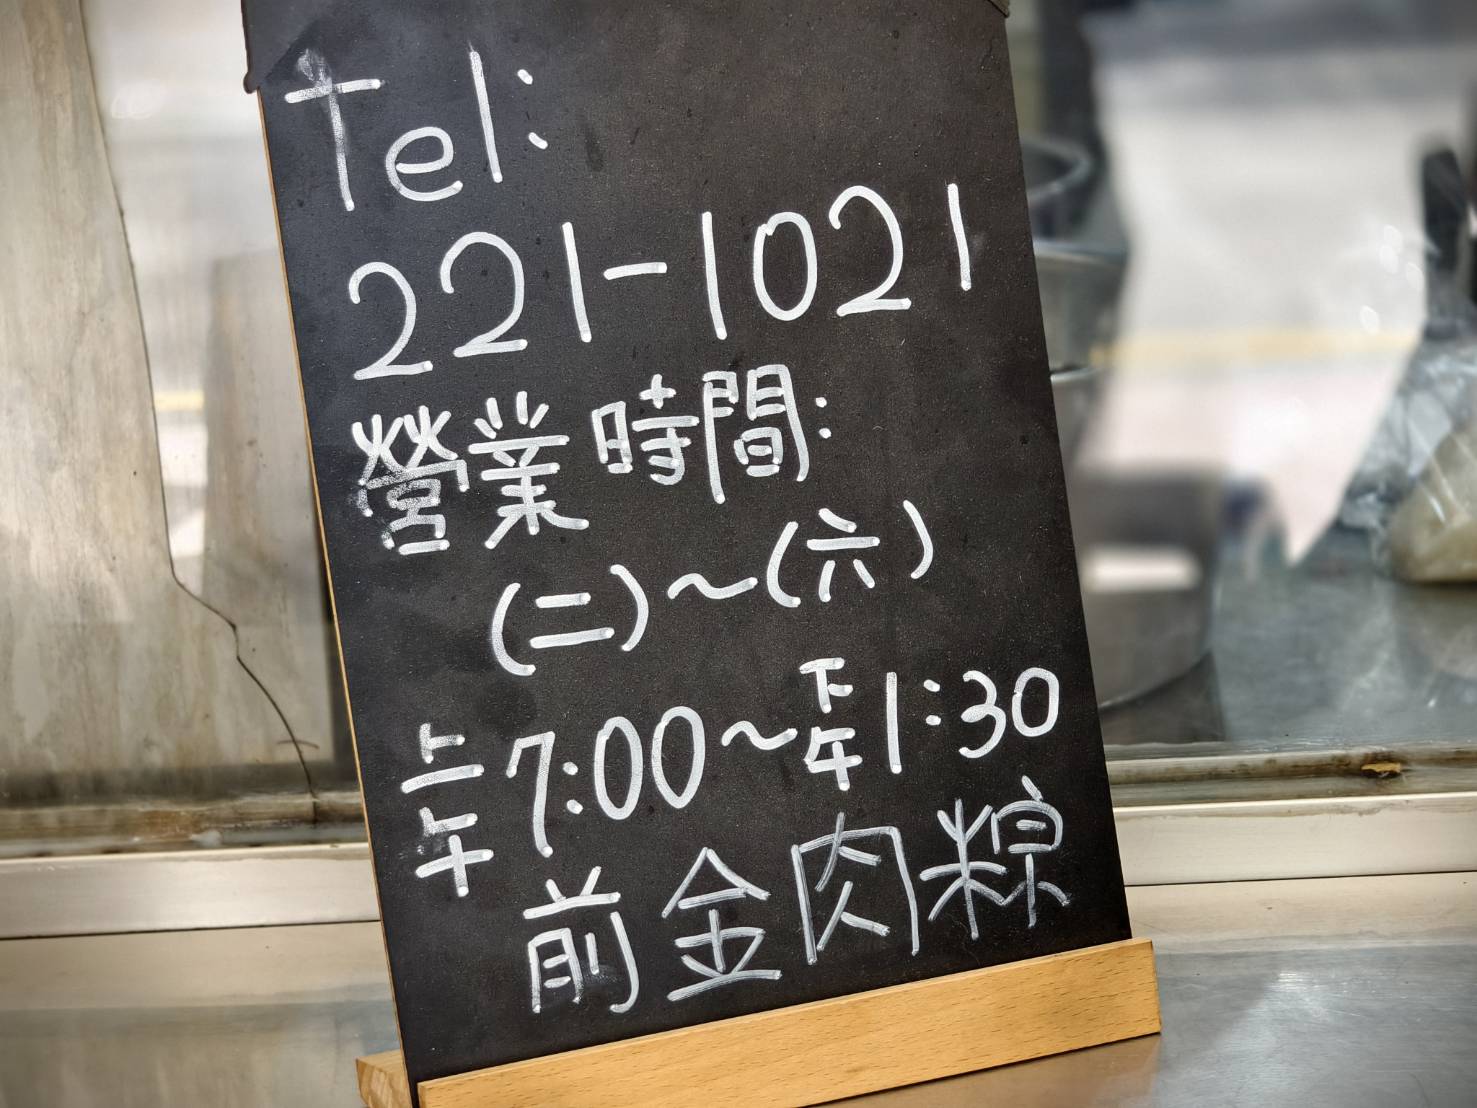 Tel:
221-1021
營業時間:
(二)~(六)
上午7:00~下午1:30
前金肉粽